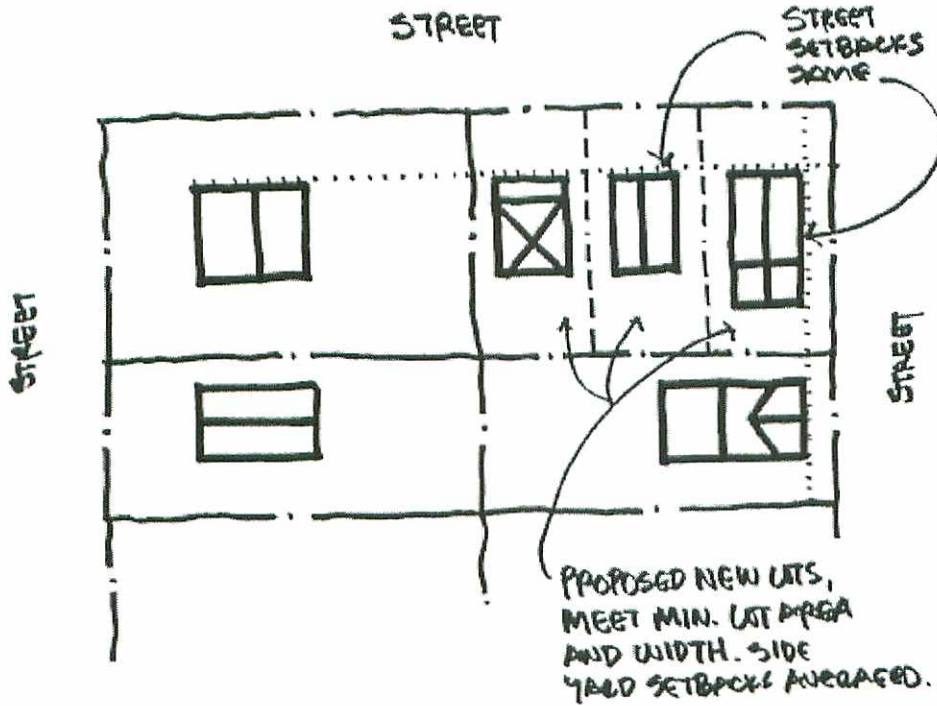 STREET
STREET
SETBACKS
SAME
STREET
STREET
PROPOSED NEW LOTS,
MEET MIN. LOT AREA
AND WIDTH. SIDE
YARD SETBACKS AVERAGED.